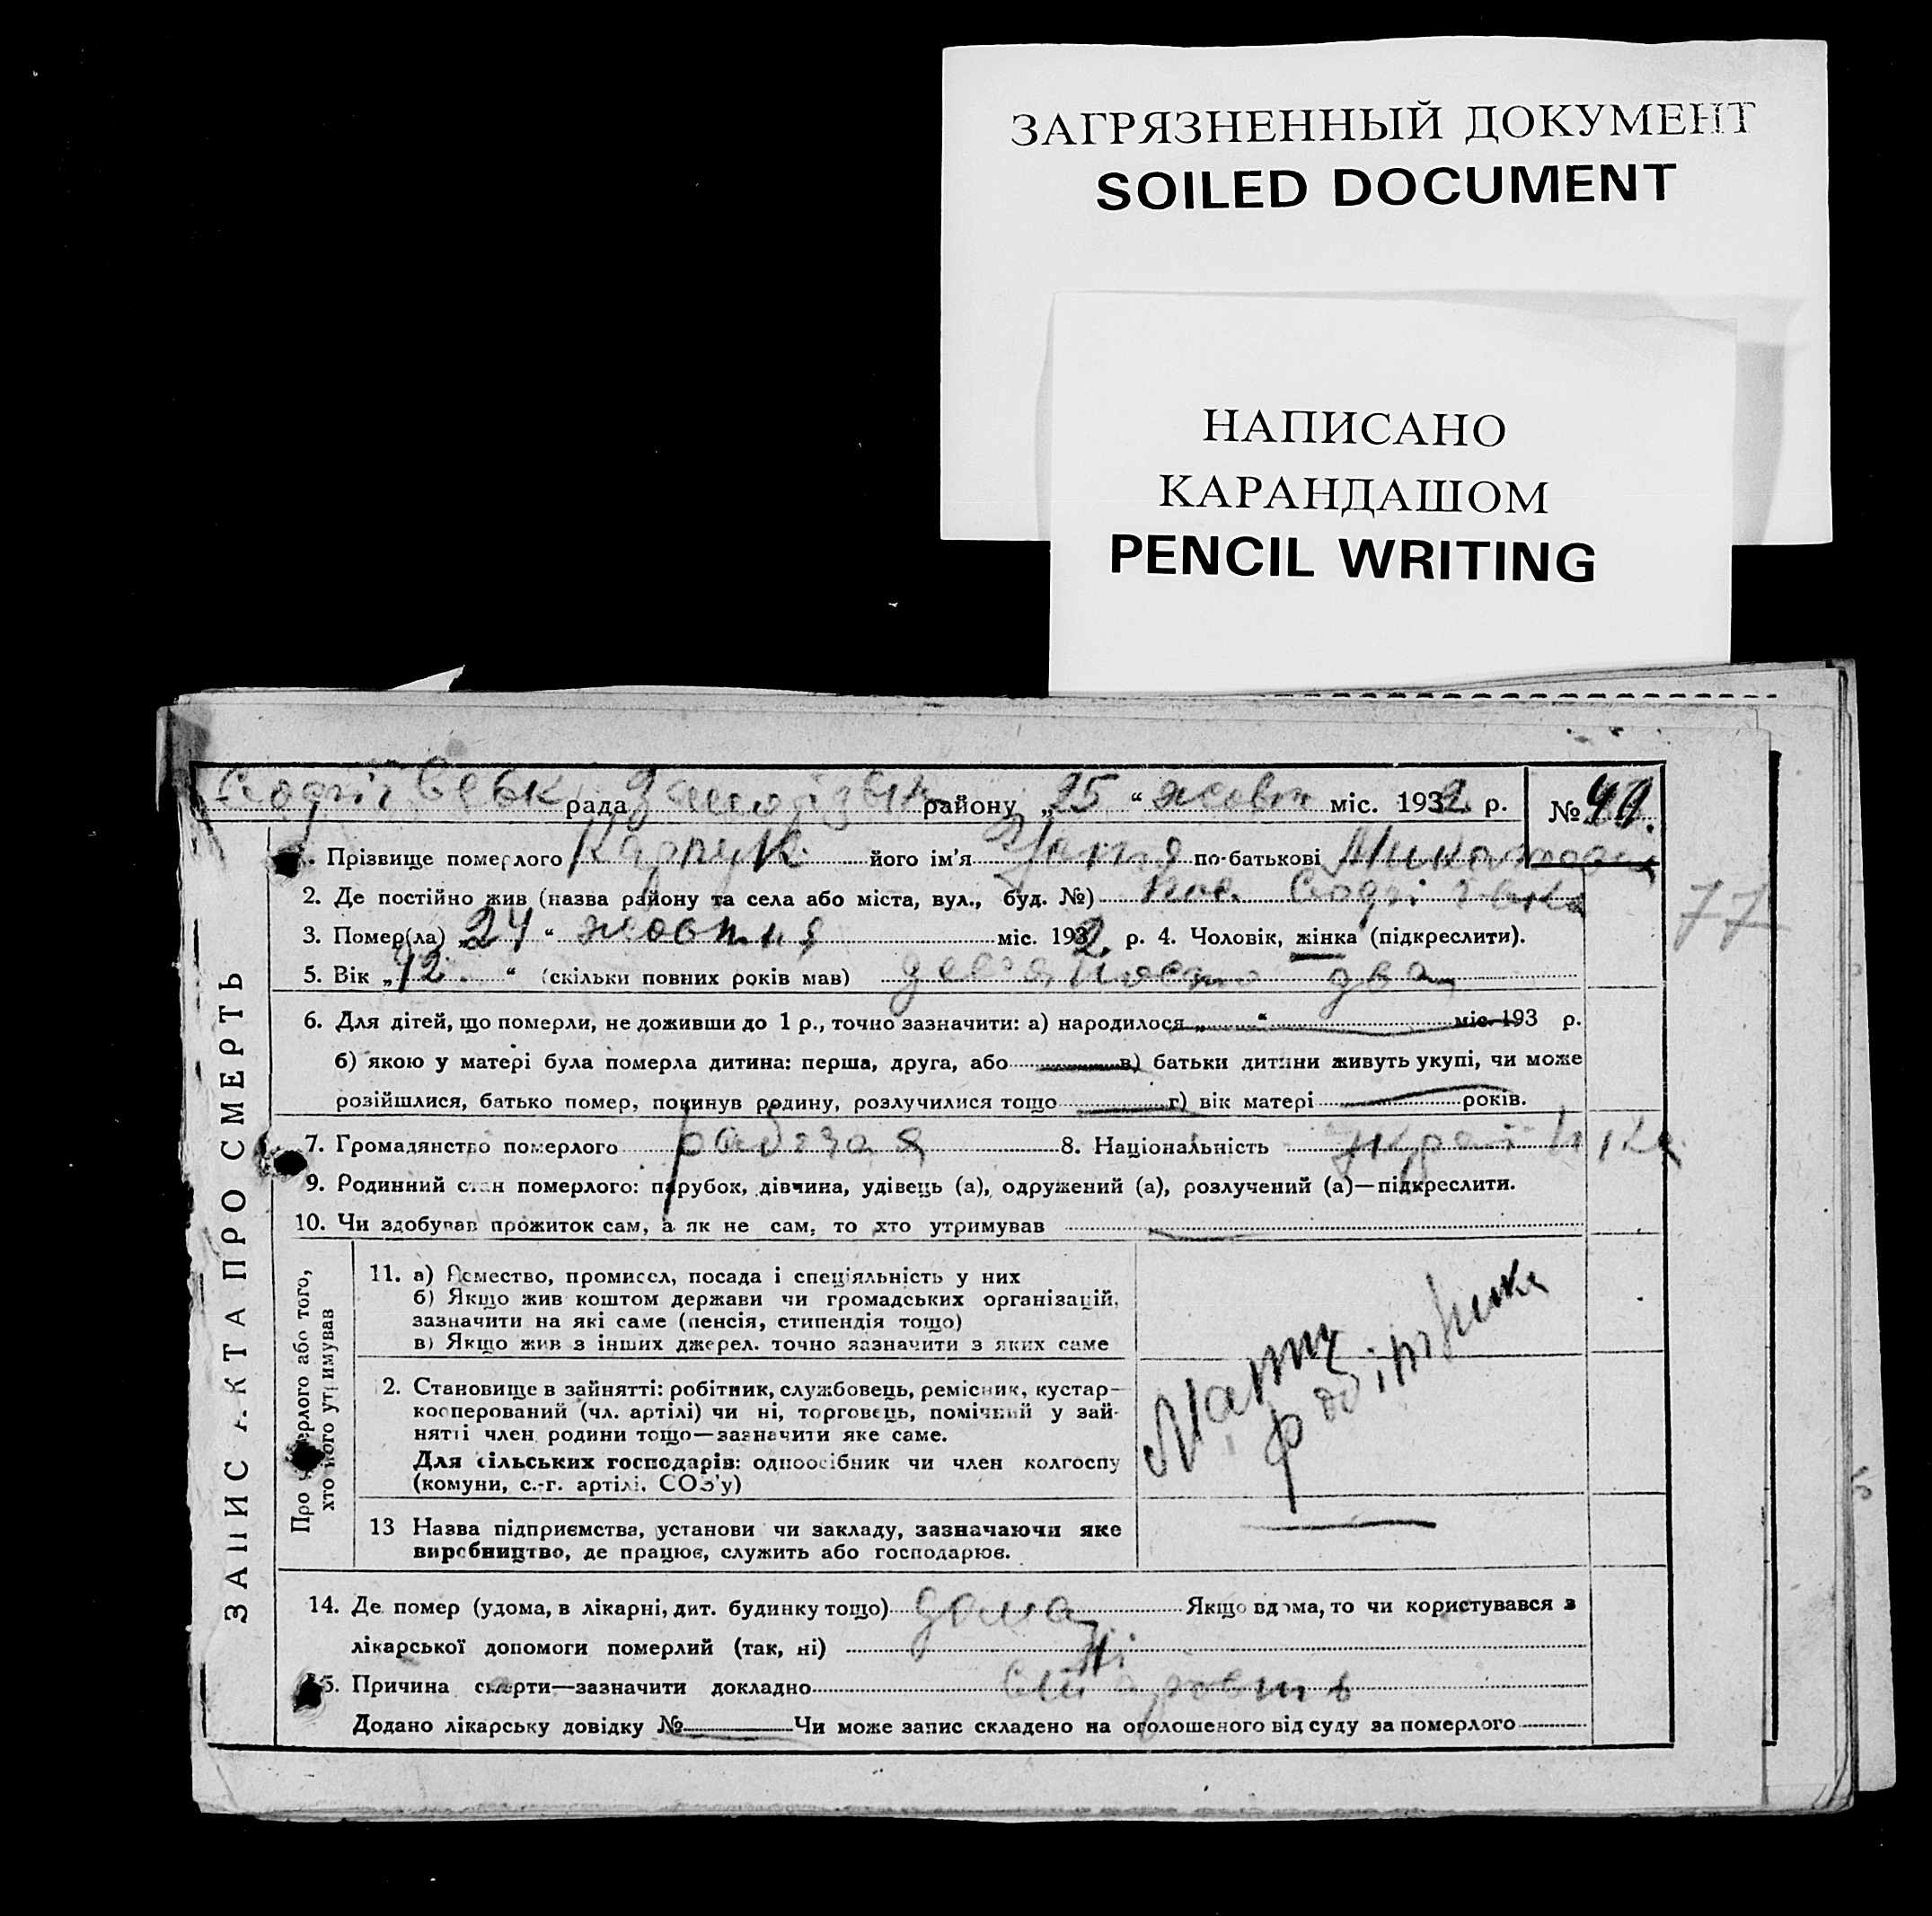 ЗАГРЯЗНЕННЫЙ ДОКУМЕНТ
SOILED DOCUMENT
НАПИСАНО
КАРАНДАШОМ
PENCIL WRITING
рада району „25 “ жовтн міс. 1932 р. №
1. Прізвище померлого Карпук його ім'я по-батькові
2. Де постійно жив (назва району та села або міста, вул., буд. №)
77
3. Помер(ла) „24 “ жовтня міс. 1932 р. 4. Чоловік, жінка (підкреслити).
5. Вік „92 “ (скільки повних років мав) девяносто два
6. Для дітей, що померли, не доживши до 1 р., точно зазначити: а) народилося „ “ міс. 193 р.
б) якою у матері була померла дитина: перша, друга, або в) батьки дитини живуть укупі, чи може
розійшлися, батько помер, покинув родину, розлучилися тощо г) вік матері років.
7. Громадянство померлого 8. Національність українка
9. Родинний стан померлого: парубок, дівчина, удівець (а), одружений (а), розлучений (а)—підкреслити.
10. Чи здобував прожиток сам, а як не сам, то хто утримував
ЗАПИС АКТА ПРО СМЕРТЬ
Про померлого або того,
хто його утримував
11. а) Ремество, промисел, посада і спеціяльність у них
б) Якщо жив коштом держави чи громадських організацій,
зазначити на які саме (пенсія, стипендія тощо)
в) Якщо жив з інших джерел. точно зазначити з яких саме
Мати
робітника
12. Становище в зайнятті: робітник, службовець, ремісник, кустар—
кооперований (чл. артілі) чи ні, торговець, помічний у зай-
нятті член родини тощо—зазначити яке саме.
Для сільських господарів: одноосібник чи член колгоспу
(комуни, с.-г. артілі, СОЗ'у)
13 Назва підприємства, установи чи закладу, зазначаючи яке
виробництво, де працює, служить або господарює.
14. Де помер (удома, в лікарні, дит. будинку тощо) дома Якщо вдома, то чи користувався з
лікарської допомоги померлий (так, ні) Ні
15. Причина смерти—зазначити докладно старость
Додано лікарську довідку № Чи може запис складено на оголошеного від суду за померлого